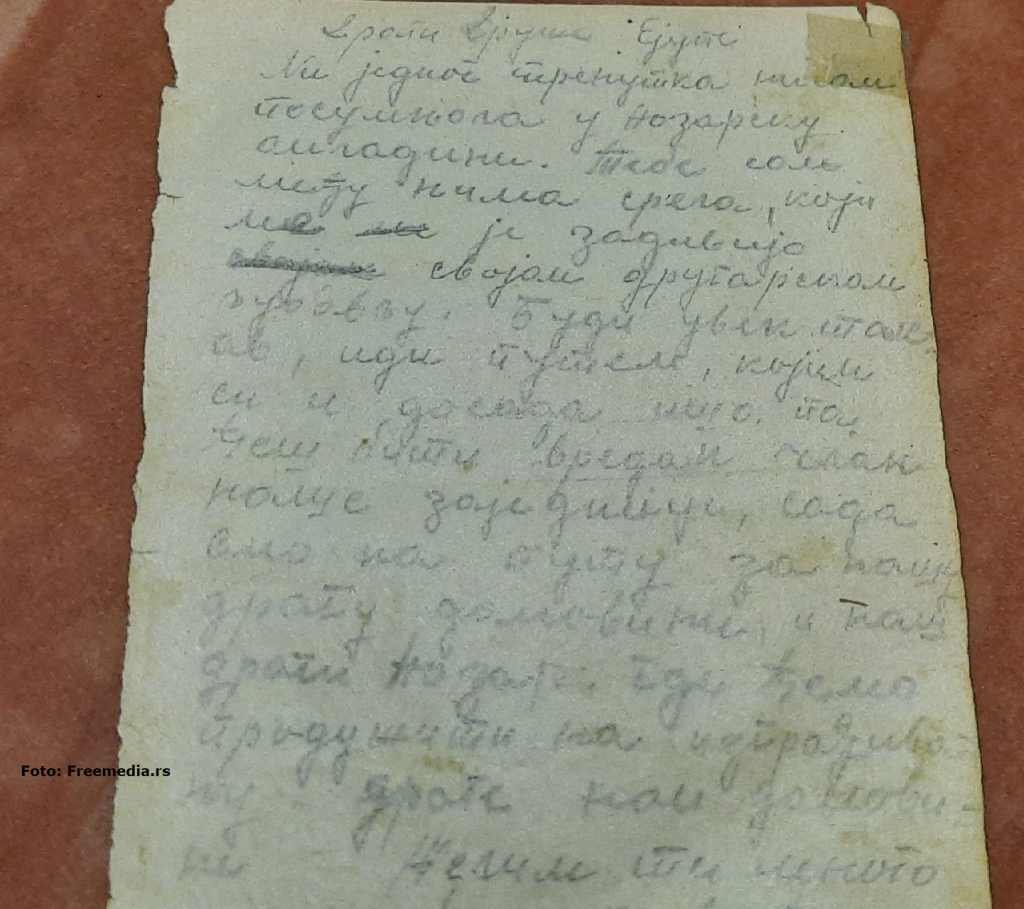 Драги друже Ејупе
Ни једног тренутка нисам
посумњала у Назарску
омладину. Тебе сам
међу њима срела, који
ме је задивио
својом другарском
љубављу. Буди увек такав
ав, иди путем, којим
си и досада ишо. па
ћеш бити вредан члан
наше заједнице, сада
смо на путу за нашу
драгу домовину и наш
драги Назар. где ћемо
продужити на изграђива-
њу драге нам домови-
не Желим ти много
Foto: Freemedia.rs